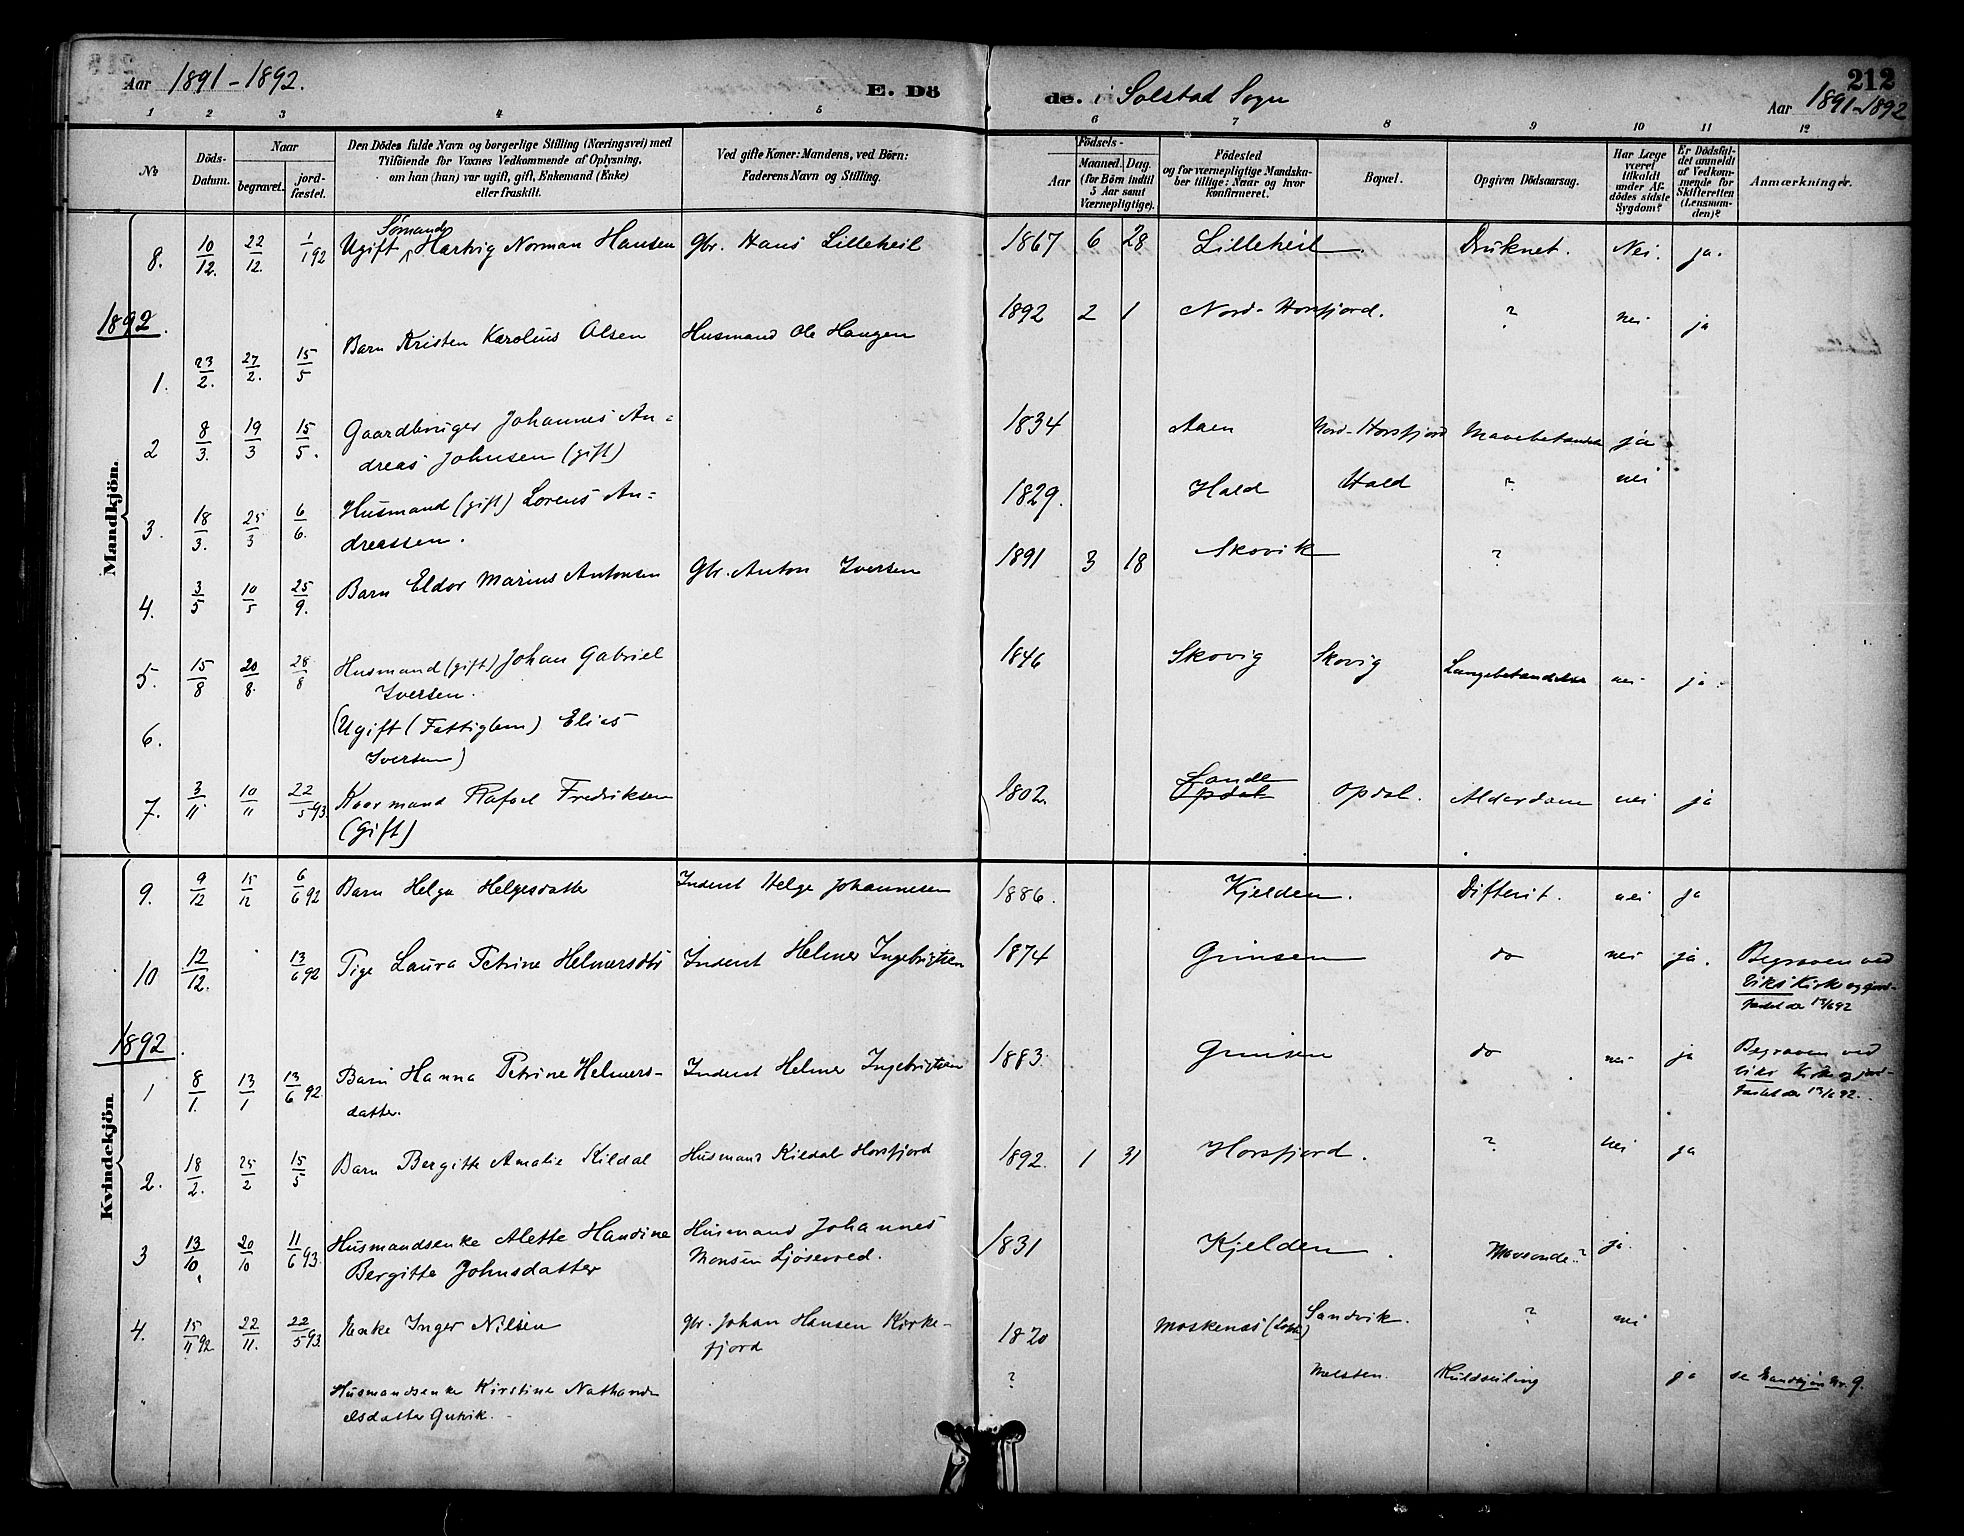 Aar 1891-1892.
E. Dö de. i Solstad Sogn
212
Aar 1891-1892
1 2 3 4 5 6 7 8 9 10 11 12
No
Döds-Datum.
Naar
begravet.
jord-fæstet.
Den Dödes fulde Navn og borgerlige Stilling (Næringsvei) med
Tilföiende for Voxnes Vedkommende af Oplysning,
om han (hun) var ugift, gift, Enkemand (Enke)
eller fraskilt.
Ved gifte Koner: Mandens, ved Börn:
Faderens Navn og Stilling.
Födsels-
Aar
Maaned.
Dag.
(for Börn indtil
5 Aar samt
Værnepligtige).
Födested
og for værnepligtige Mandska-
ber tillige: Naar og hvor
konfirmeret.
Bopæl.
Opgiven Dödsaarsag.
Har Læge
været
tilkaldt
under Af-
dödes sidste
Sygdom?
Er Dödsfal-
det anmeldt
af Vedkom-
mende for
Skifteretten
(Lensman-
den)?
Anmærkninger.
Mandkjön.
8. 10/12. 22/12. 1/1 92 Ugift Sømand Hartvig Norman Hansen Gbr. Hans Lilleheil 1867 6 28 Lilleheil Druknet. Nei. ja.
1892.
1. 23/2. 27/2. 15/5 Barn Kristen Karolius Olsen Husmand Ole Haugen 1892 2 1 Nord-Horsfjord. ? nei ja
2 8/3. 19/3 15/5. Gaardbruger Johannes An-
dreas Johnsen (gift) 1834 Aaen Nord-Horsfjord Mavebetændelse ja
3. 18/3. 25/3 6/6. Husmand (gift) Lorens An-
dreassen. 1829. Hald Hald ? nei
4. 3/5 10/5 25/9. Barn Eldor Marius Antonsen Gbr. Anton Iversen 1891 3 18 Skovik ?
5. 15/8 20/8. 28/8 Husmand (gift) Johan Gabriel
Iversen. 1846 Skovig Skovig Lungebetændelse nei ja.
6. (Ugift (Fattiglem) Elias
Iversen)
7. 3/11 10/11 22/5 93. Kaarmand Rafael Fredriksen
(Gift) 1802. Lande
Opdal Opdal. Alderdom nei ja
Kvindekjön.
9. 9/12 15/12 6/6 92 Barn Helga Helgesdatter Inderst Helge Johannesen 1886. Kjelden. Difterit. nei ja
10 12/12. 13/6 92 Pige Laura Petrine Helmersdtr Inderst Helmer Ingebrigtsen 1874 Grimsen do nei ja. Begraven ved
Viks Kirke og jord-
fæstet der 13/6 92
1892.
1 8/1. 13/1 13/6 92. Barn Hanna Petrine Helmers-
datter. Inderst Helmer Ingebrigtsen 1883. Grimsen do nei ja Begraven ved
Viks Kirke og jord-
fæstet der 13/6 92.
2. 18/2. 25/2 15/5 Barn Bergitte Amalie Kildal Husmand Kildal Horsfjord 1892. 1 31 Horsfjord. ? nei ja
3 13/10 20/10 11/6 93. Husmandsenke Alette Handine
Bergitte Johnsdatter Husmand Johannes
Monsen 1831 Kjelden. ja.
4. 15/11 92 22/11. 22/5 93. Enke Inger Nilsen gbr. Johan Hansen Kirke-
fjord 1820 Moskenæs (Lofot) Sandvik. ? nei
" Husmandsenke Kirstine Nathana-
elsdatter Gutvik. ? Melsten. Kuldseiling ja se Mandkjøn Nr. 9.